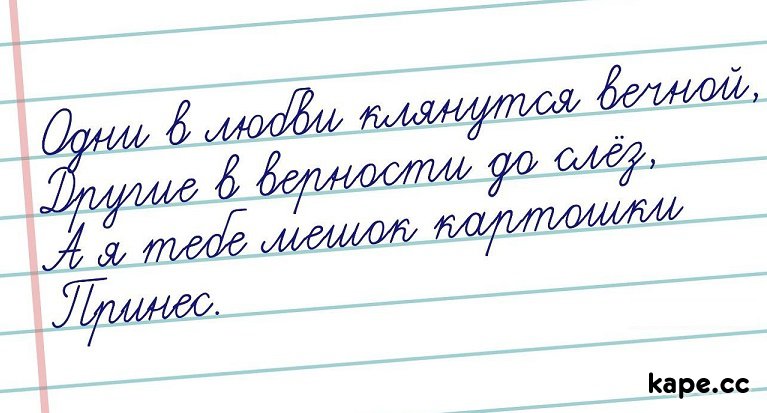 Одни в любви клянутся вечной,
Другие в верности до слёз,
А я тебе мешок картошки
Принес.
kape.cc